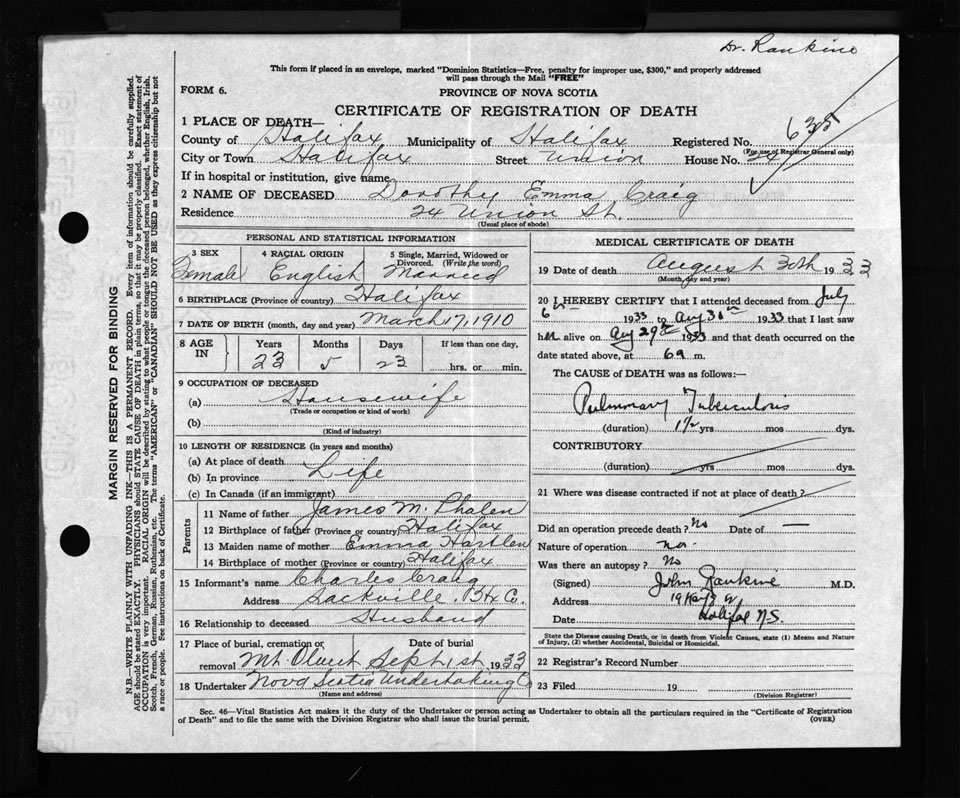 Dr. Rankine
This form if placed in an envelope, marked "Dominion Statistics—Free, penalty for improper use, $300," and properly addressed
will pass through the Mail "FREE"
FORM 6.
PROVINCE OF NOVA SCOTIA
CERTIFICATE OF REGISTRATION OF DEATH
635
1 PLACE OF DEATH—
County of Halifax Municipality of Halifax Registered No.
(For use of Registrar General only)
City or Town Halifax Street Union House No. 24
If in hospital or institution, give name
2 NAME OF DECEASED Dorothy Emma Craig
Residence 24 Union St.
(Usual place of abode)
PERSONAL AND STATISTICAL INFORMATION
3 SEX 4 RACIAL ORIGIN 5 Single, Married, Widowed or Divorced. (Write the word)
Female English Married
6 BIRTHPLACE (Province or country) Halifax
7 DATE OF BIRTH (month, day and year) March 7, 1910
8 AGE IN Years Months Days If less than one day,
23 5 23 hrs. or min.
9 OCCUPATION OF DECEASED
(a) Housewife
(Trade or occupation or kind of work)
(b)
(Kind of industry)
10 LENGTH OF RESIDENCE (in years and months)
(a) At place of death
(b) In province Life
(c) In Canada (if an immigrant)
Parents
11 Name of father James M. Phalen
12 Birthplace of father (Province or country) Halifax
13 Maiden name of mother Emma Hartlen
14 Birthplace of mother (Province or country) Halifax
15 Informant's name Charles Craig
Address Sackville. Hx Co.
16 Relationship to deceased Husband
17 Place of burial, cremation or Date of burial
removal Mt. Olivet Sept 1st 1933
18 Undertaker Nova Scotia Undertaking Co
(Name and address)
MEDICAL CERTIFICATE OF DEATH
19 Date of death August 30th 1933
(Month, day and year)
20 I HEREBY CERTIFY that I attended deceased from July
6th 1933 to Aug 30th 1933 that I last saw
her alive on Aug 29th 1933 and that death occurred on the
date stated above, at 6 a m.
The CAUSE of DEATH was as follows:—
Pulmonary Tuberculosis
(duration) 1½ yrs mos dys.
CONTRIBUTORY
(duration) yrs mos dys.
21 Where was disease contracted if not at place of death?
Did an operation precede death? No Date of —
Nature of operation no.
Was there an autopsy? No
(Signed) John Rankine M.D.
Address
Date Halifax N.S.
State the Disease causing Death, or in death from Violent Causes, state (1) Means and Nature
of Injury, (2) whether Accidental, Suicidal or Homicidal.
22 Registrar's Record Number
23 Filed 19
(Division Registrar)
Sec. 46—Vital Statistics Act makes it the duty of the Undertaker or person acting as Undertaker to obtain all the particulars required in the "Certificate of Registration
of Death" and to file the same with the Division Registrar who shall issue the burial permit.
(OVER)
MARGIN RESERVED FOR BINDING
N.B.—WRITE PLAINLY WITH UNFADING INK—THIS IS A PERMANENT RECORD. Every item of information should be carefully supplied.
AGE should be stated EXACTLY. PHYSICIANS should STATE CAUSE OF DEATH in plain terms, so that it may be properly classified. Exact statement of
OCCUPATION is very important. RACIAL ORIGIN will be described by stating to what people or tongue the deceased person belonged, whether English, Irish,
Scotch, French, German, Russian, Ruthenian, etc. The terms "AMERICAN" or "CANADIAN" SHOULD NOT BE USED as they express citizenship but not
a race or people. See instructions on back of Certificate.